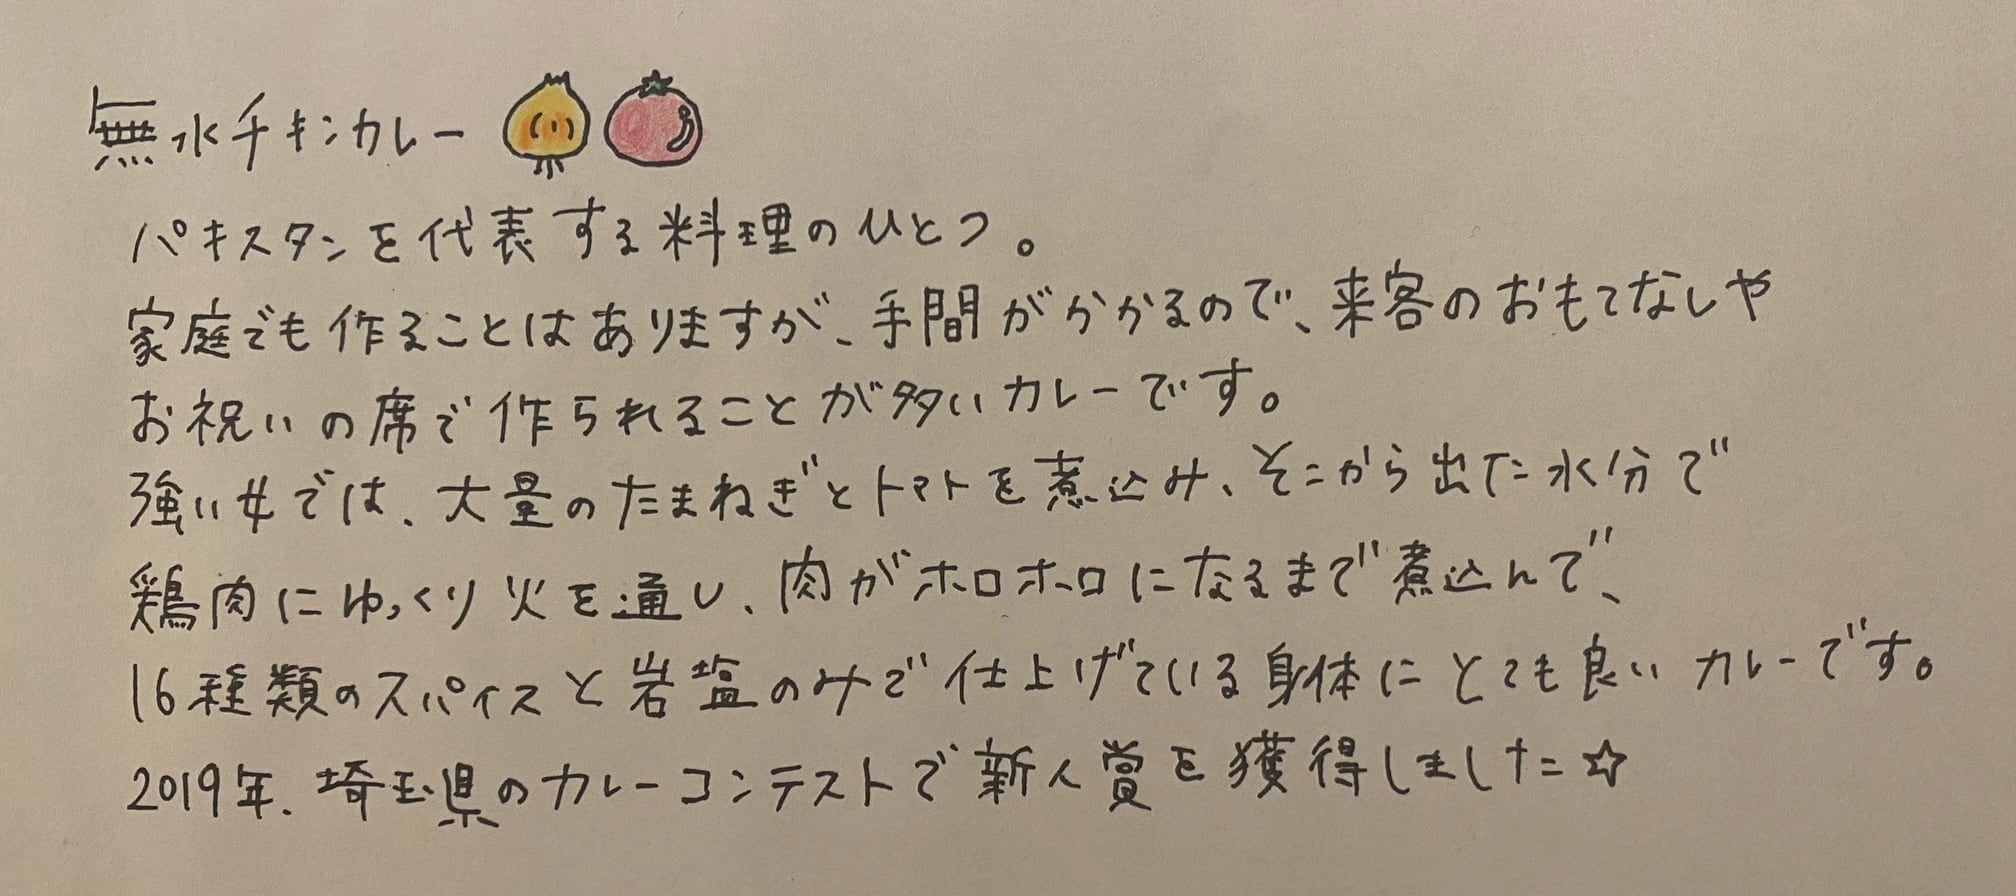 無水チキンカレー
パキスタンを代表する料理のひとつ。
家庭でも作ることはありますが、手間がかかるので、来客のおもてなしや
お祝いの席で作られることが多いカレーです。
強い女では、大量のたまねぎとトマトを煮込み、そこから出た水分で
鶏肉にゆっくり火を通し、肉がホロホロになるまで煮込んで、
16種類のスパイスと岩塩のみで仕上げている身体にとても良いカレーです。
2019年、埼玉県のカレーコンテストで新人賞を獲得しました☆